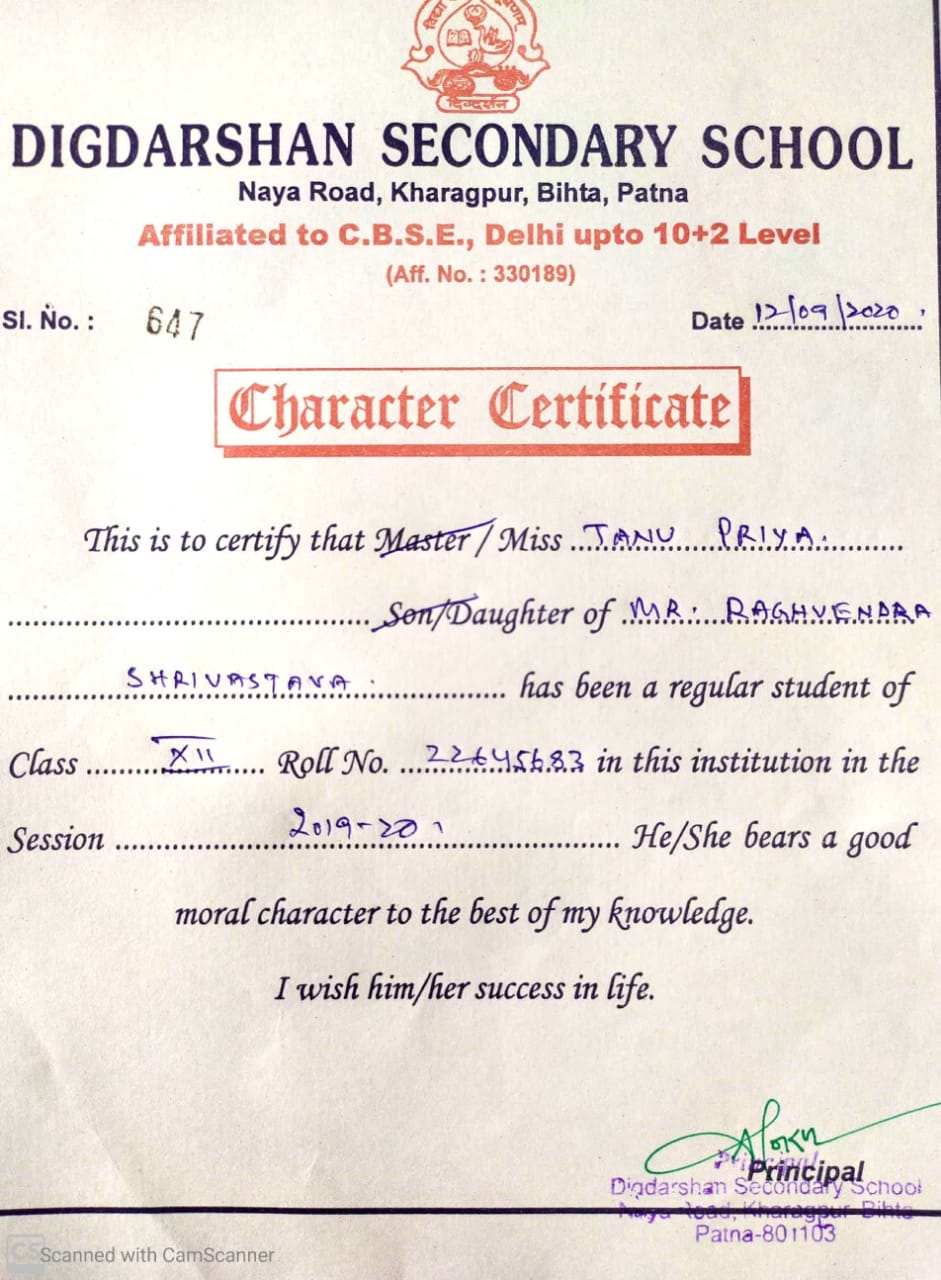 दिग्दर्शन
DIGDARSHAN SECONDARY SCHOOL
Naya Road, Kharagpur, Bihta, Patna
Affiliated to C.B.S.E., Delhi upto 10+2 Level
(Aff. No. : 330189)
Sl. No. : 647 Date 12/09/2020
Character Certificate
This is to certify that Master / Miss TANU PRIYA.
Son/Daughter of MR. RAGHVENDRA
SHRIVASTAVA. has been a regular student of
Class XII Roll No. 22645683 in this institution in the
Session 2019-20 He/She bears a good
moral character to the best of my knowledge.
I wish him/her success in life.
Principal
Principal
Digdarshan Secondary School
Naya Road, Kharagpur Bihta
Patna-801103
CS Scanned with CamScanner